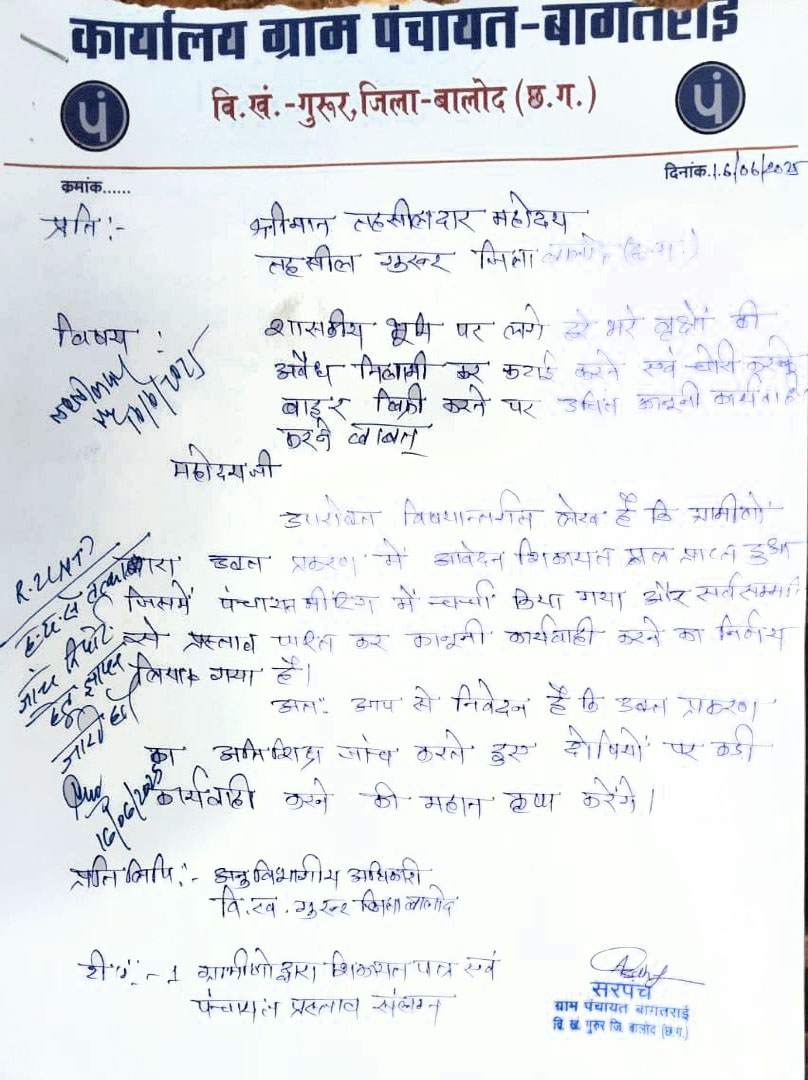 कार्यालय ग्राम पंचायत-बागतराई
वि.खं.-गुरूर, जिला-बालोद (छ.ग.)
पं
पं
कमांक......
दिनांक.16/06/2025
प्रति :-
श्रीमान तहसीलदार महोदय
तहसील गुरूर जिला बालोद (छ.ग.)
विषय :
शासकीय भूमि पर लगे हरे भरे वृक्षों की
अवैध निलामी कर कटाई करने एवं चोरी करके
बाहर बिक्री करने पर उचित कानूनी कार्यवाही
करने बाबत्
महोदय जी
उपरोक्त विषयान्तर्गत लेख है कि ग्रामीणों
द्वारा उक्त प्रकरण में आवेदन शिकायत प्राप्त हुआ
जिसमें पंचायत मीटिंग में चर्चा किया गया और सर्वसम्मति
से प्रस्ताव पारित कर कानूनी कार्यवाही करने का निर्णय
लिया गया है।
अतः आप से निवेदन है कि उक्त प्रकरण
का अतिशिघ्र जांच करते हुए दोषियों पर कडी
कार्यवाही करने की महान कृपा करेंगे।
जांच रिपोर्ट
हेतु ज्ञापन
जारी हो
16/06/2025
प्रतिलिपि :- अनुविभागीय अधिकारी
वि.ख. गुरूर जिला बालोद
टीप :- 1 ग्रामीणो द्वारा शिकायत पत्र एवं
पंचायत प्रस्ताव संलग्न
सरपंच
ग्राम पंचायत बागतराई
वि. खं. गुरुर जि. बालोद (छ.ग.)